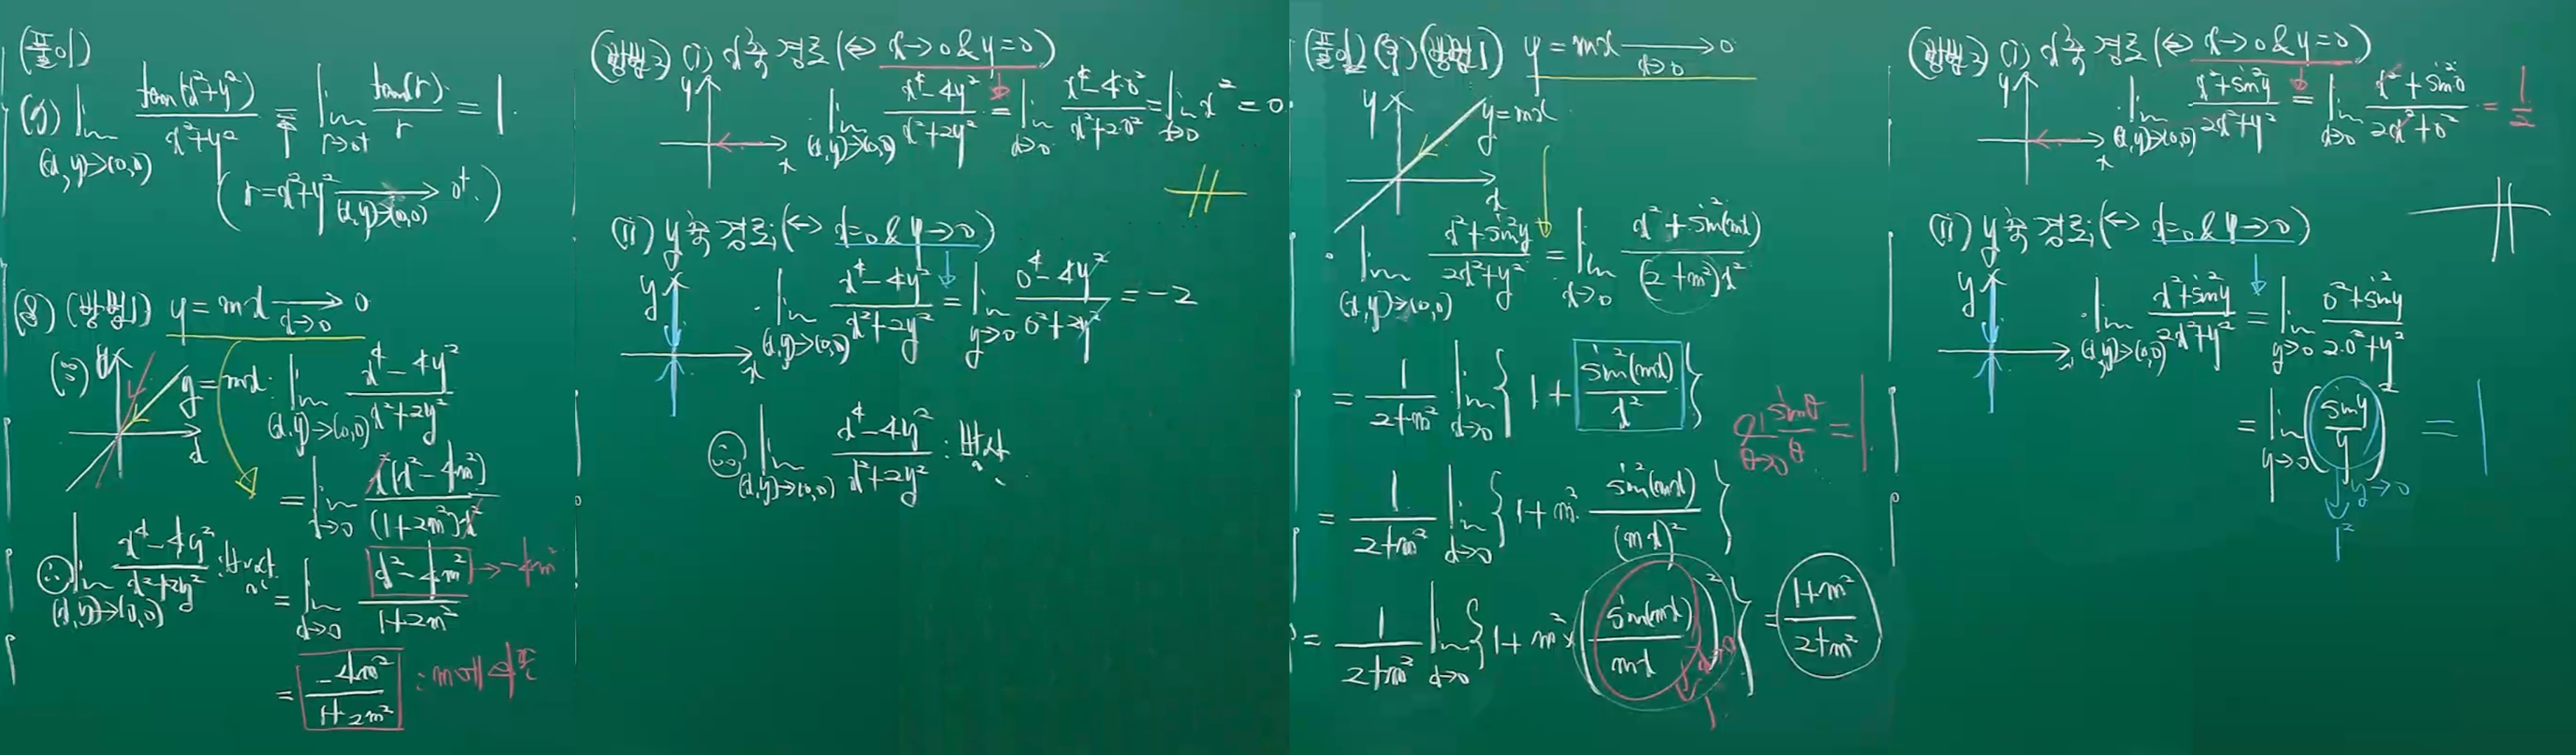 (풀이)
(7) lim_{(x,y)→(0,0)} tan(x²+y²)/(x²+y²) = lim_{r→0+} tan(r)/r = 1.
(r=x²+y² →_{(x,y)→(0,0)} 0+.)
(8) (방법1) y=mx →_{x→0} 0
(∵) y x y=mx. lim_{(x,y)→(0,0)} (x⁴-4y²)/(x²+2y²)
= lim_{x→0} x²(x²-4m²)/((1+2m²)x²)
= lim_{x→0} (x²-4m²)/(1+2m²) → -4m²
= -4m²/(1+2m²) : m에 의존
∴ lim_{(x,y)→(0,0)} (x⁴-4y²)/(x²+2y²) : 발산
(방법2) (i) x축 경로 (↔ x→0 & y=0)
y x lim_{(x,y)→(0,0)} (x⁴-4y²)/(x²+2y²) = lim_{x→0} (x⁴-4·0²)/(x²+2·0²) = lim_{x→0} x² = 0.
(ii) y축 경로; (↔ x=0 & y→0)
y x · lim_{(x,y)→(0,0)} (x⁴-4y²)/(x²+2y²) = lim_{y→0} (0⁴-4y²)/(0²+2y²) = -2
∴ lim_{(x,y)→(0,0)} (x⁴-4y²)/(x²+2y²) : 발산
(풀이) (9) (방법1) y=mx →_{x→0} 0
y x y=mx
· lim_{(x,y)→(0,0)} (x²+sin²y)/(2x²+y²) = lim_{x→0} (x²+sin²(mx))/((2+m²)x²)
= 1/(2+m²) lim_{x→0} {1 + sin²(mx)/x²}
lim_{θ→0} sinθ/θ = 1
= 1/(2+m²) lim_{x→0} {1+m²· sin²(mx)/(mx)²}
= 1/(2+m²) lim_{x→0} {1+m²×(sin(mx)/mx)²} = (1+m²)/(2+m²)
x→0
1
(방법2) (i) x축 경로 (↔ x→0 & y=0)
y x lim_{(x,y)→(0,0)} (x²+sin²y)/(2x²+y²) = lim_{x→0} (x²+sin²0)/(2x²+0²) = 1/2
(ii) y축 경로; (↔ x=0 & y→0)
y x · lim_{(x,y)→(0,0)} (x²+sin²y)/(2x²+y²) = lim_{y→0} (0²+sin²y)/(2·0²+y²)
= lim_{y→0} (sin y/y)² = 1
y→0
1²